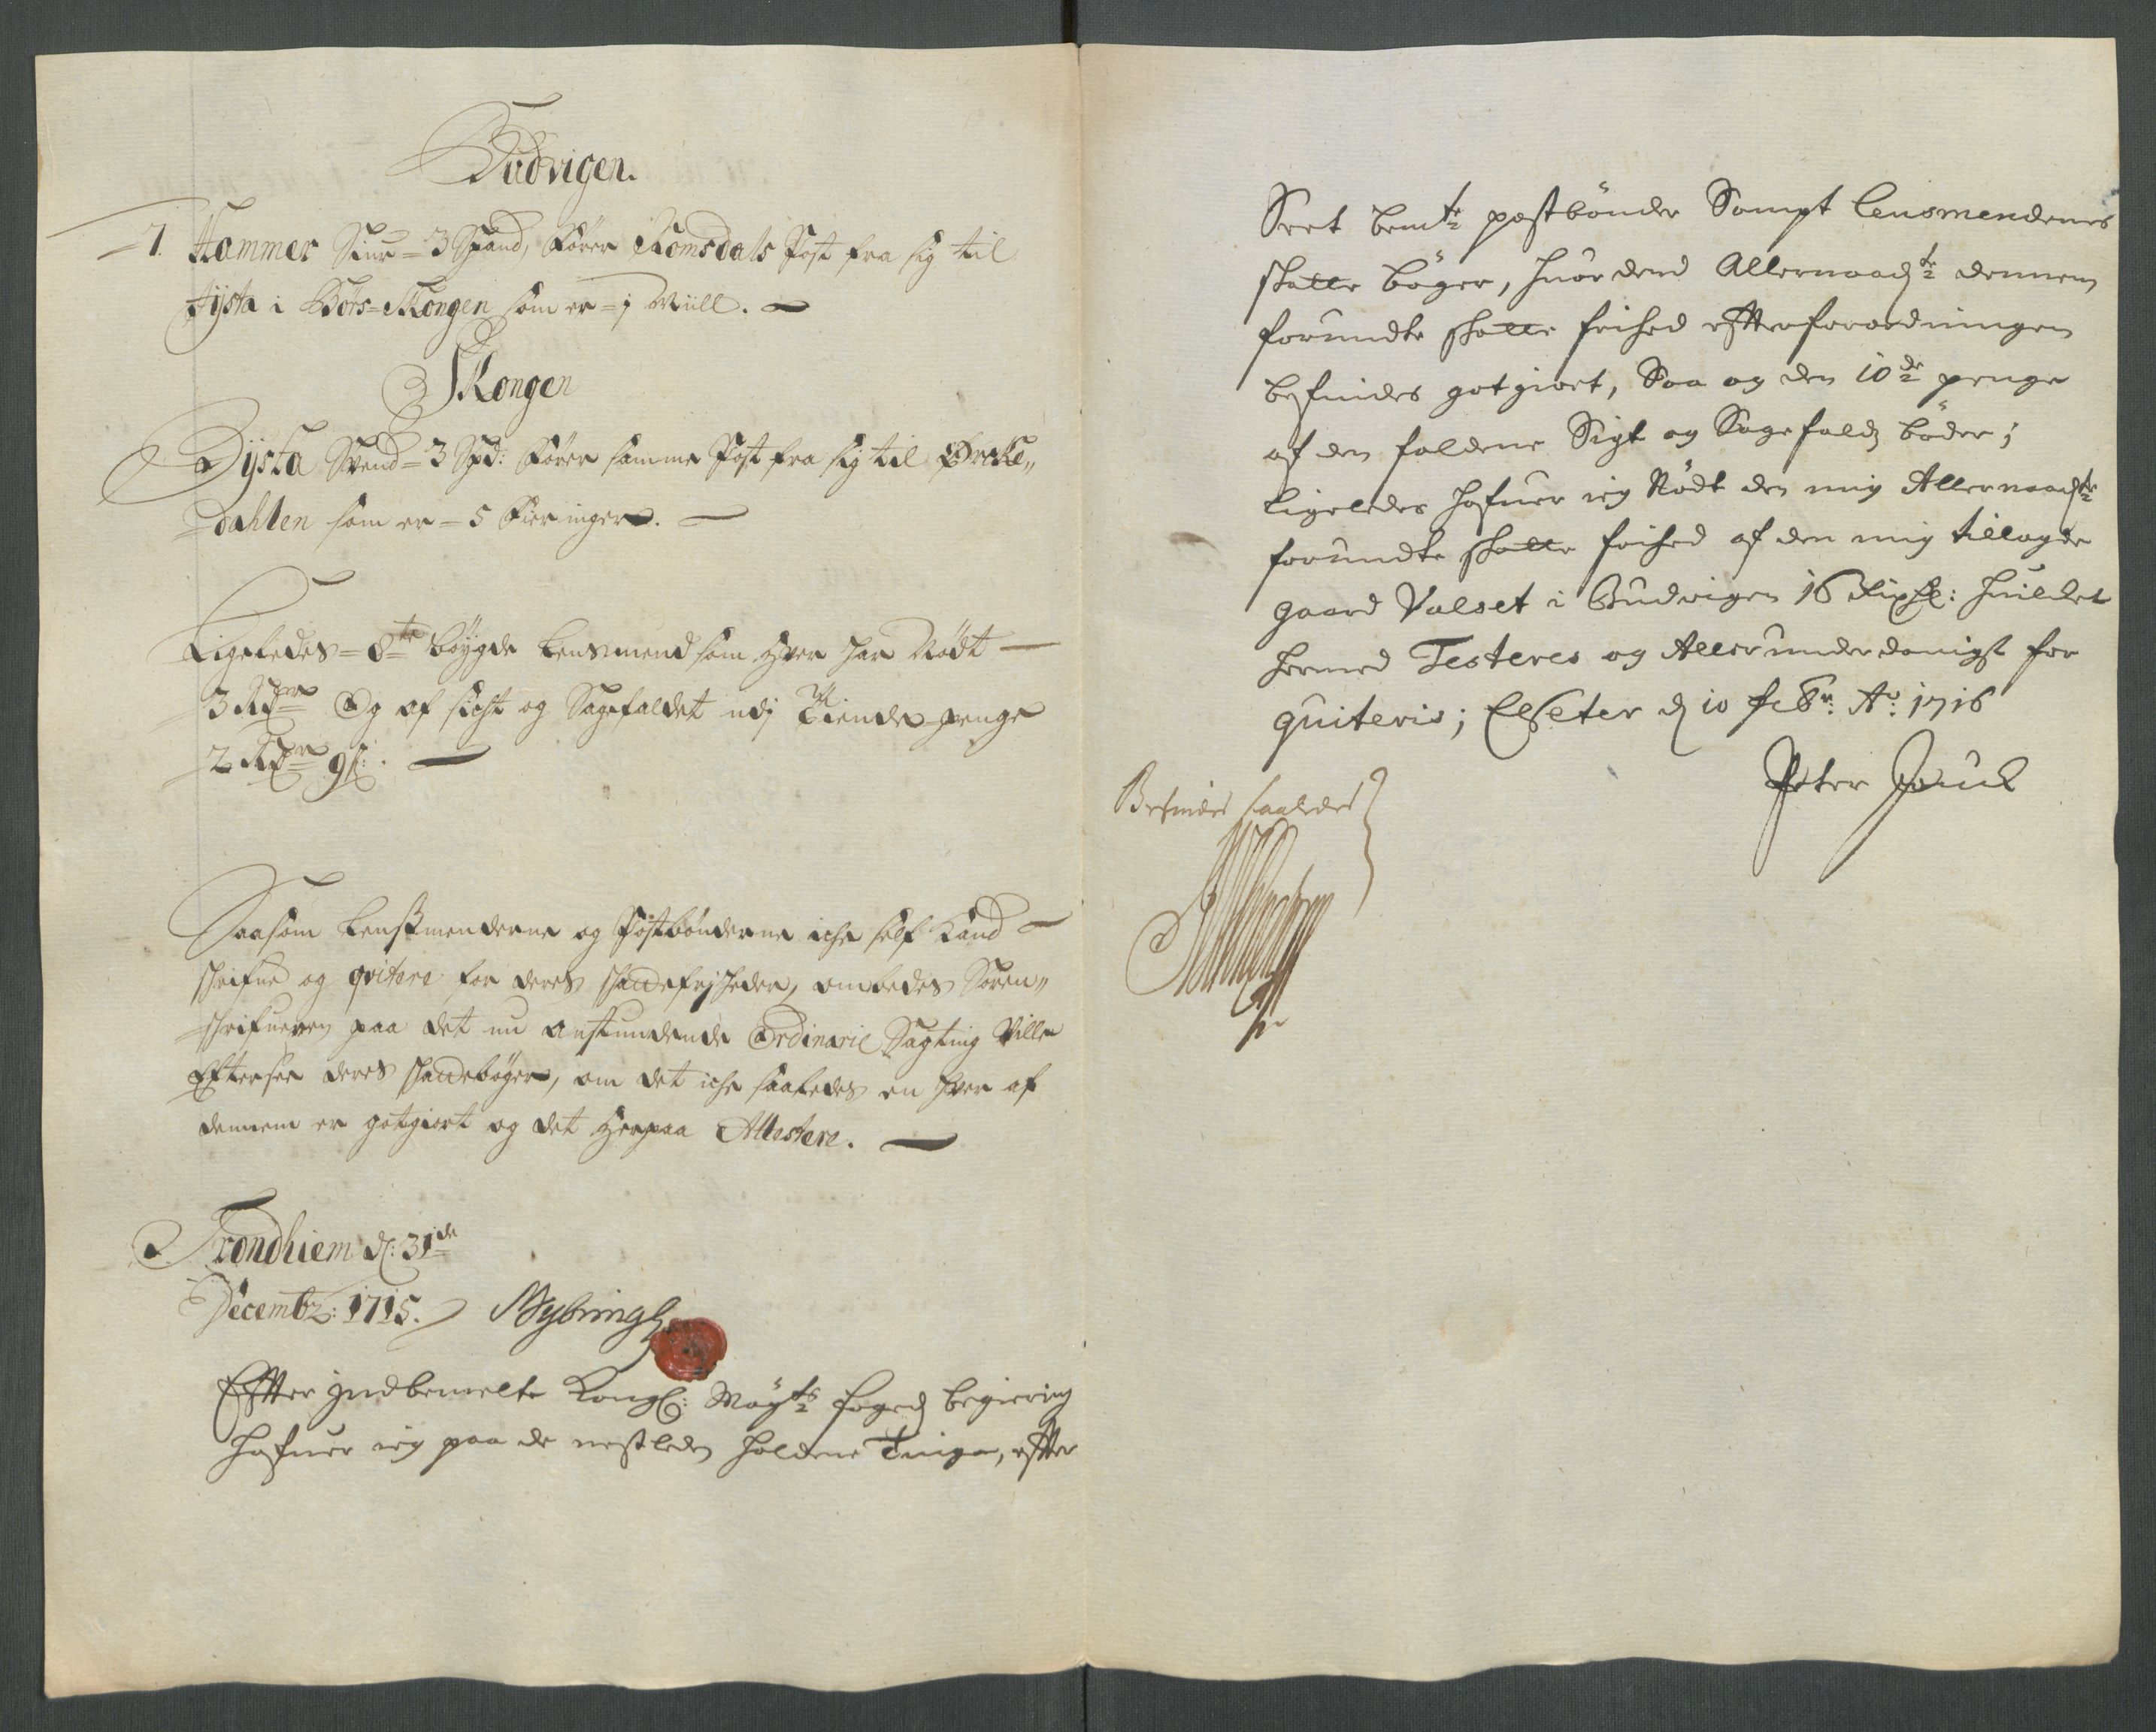 Budvigen.
7. Hammer Siur = 3 Spand, Fører Romsdals Post fra sig til
Dÿsta i Børs=Skongen som er = j Miill.
Skongen
Dÿsta Svend = 3 Spd: Fører samme Post fra sig til Ørche„
dahlen som er = 5 Fieringer.
Ligeledes = 8te bøygde Lensmend som hver har Nødt
3 Rdr Og af sicht og Sagefaldet udj Tiende penge
2 Rdr 9 s:
Saasom Lensmenderne og Postbønderne iche self Kand
schrifue og qvitere for deres schattefrjheder, ombedes Soren„
schrifueren paa det nu anstundende Ordinarie Sagting Ville
Eftersee deres schattebøger, om det iche saaledes en hver af
dennem er gotgiort og det herpaa Attestere.
Trondhiem d: 31de
Decembr: 1715. Nybring
Effter Indbemelte Kongl: Mayts foged begiering
hafuer ieg paa de nestleden holdene Tinge, effter
Seet bemte postbønder Sampt lensmendenes
skatte bøger, huor dend Allernaadste dennem
forundte skatte frihed effter forordningen
befindes gotgiort, Saa og den 10de penge
af den faldene Sigt og Sagefalds bøder;
Ligeledes hafuer ieg Nødt den mig Allernaadste
forundte skatte frihed af den mig tillagde
gaard Valset i Budvigen 16 : huilchet
hermed Testeres og Allerunderdanigst for
quiteris; Elseter d 10 Febr: Ao: 1716
Peter Juul
Befindes saaledes